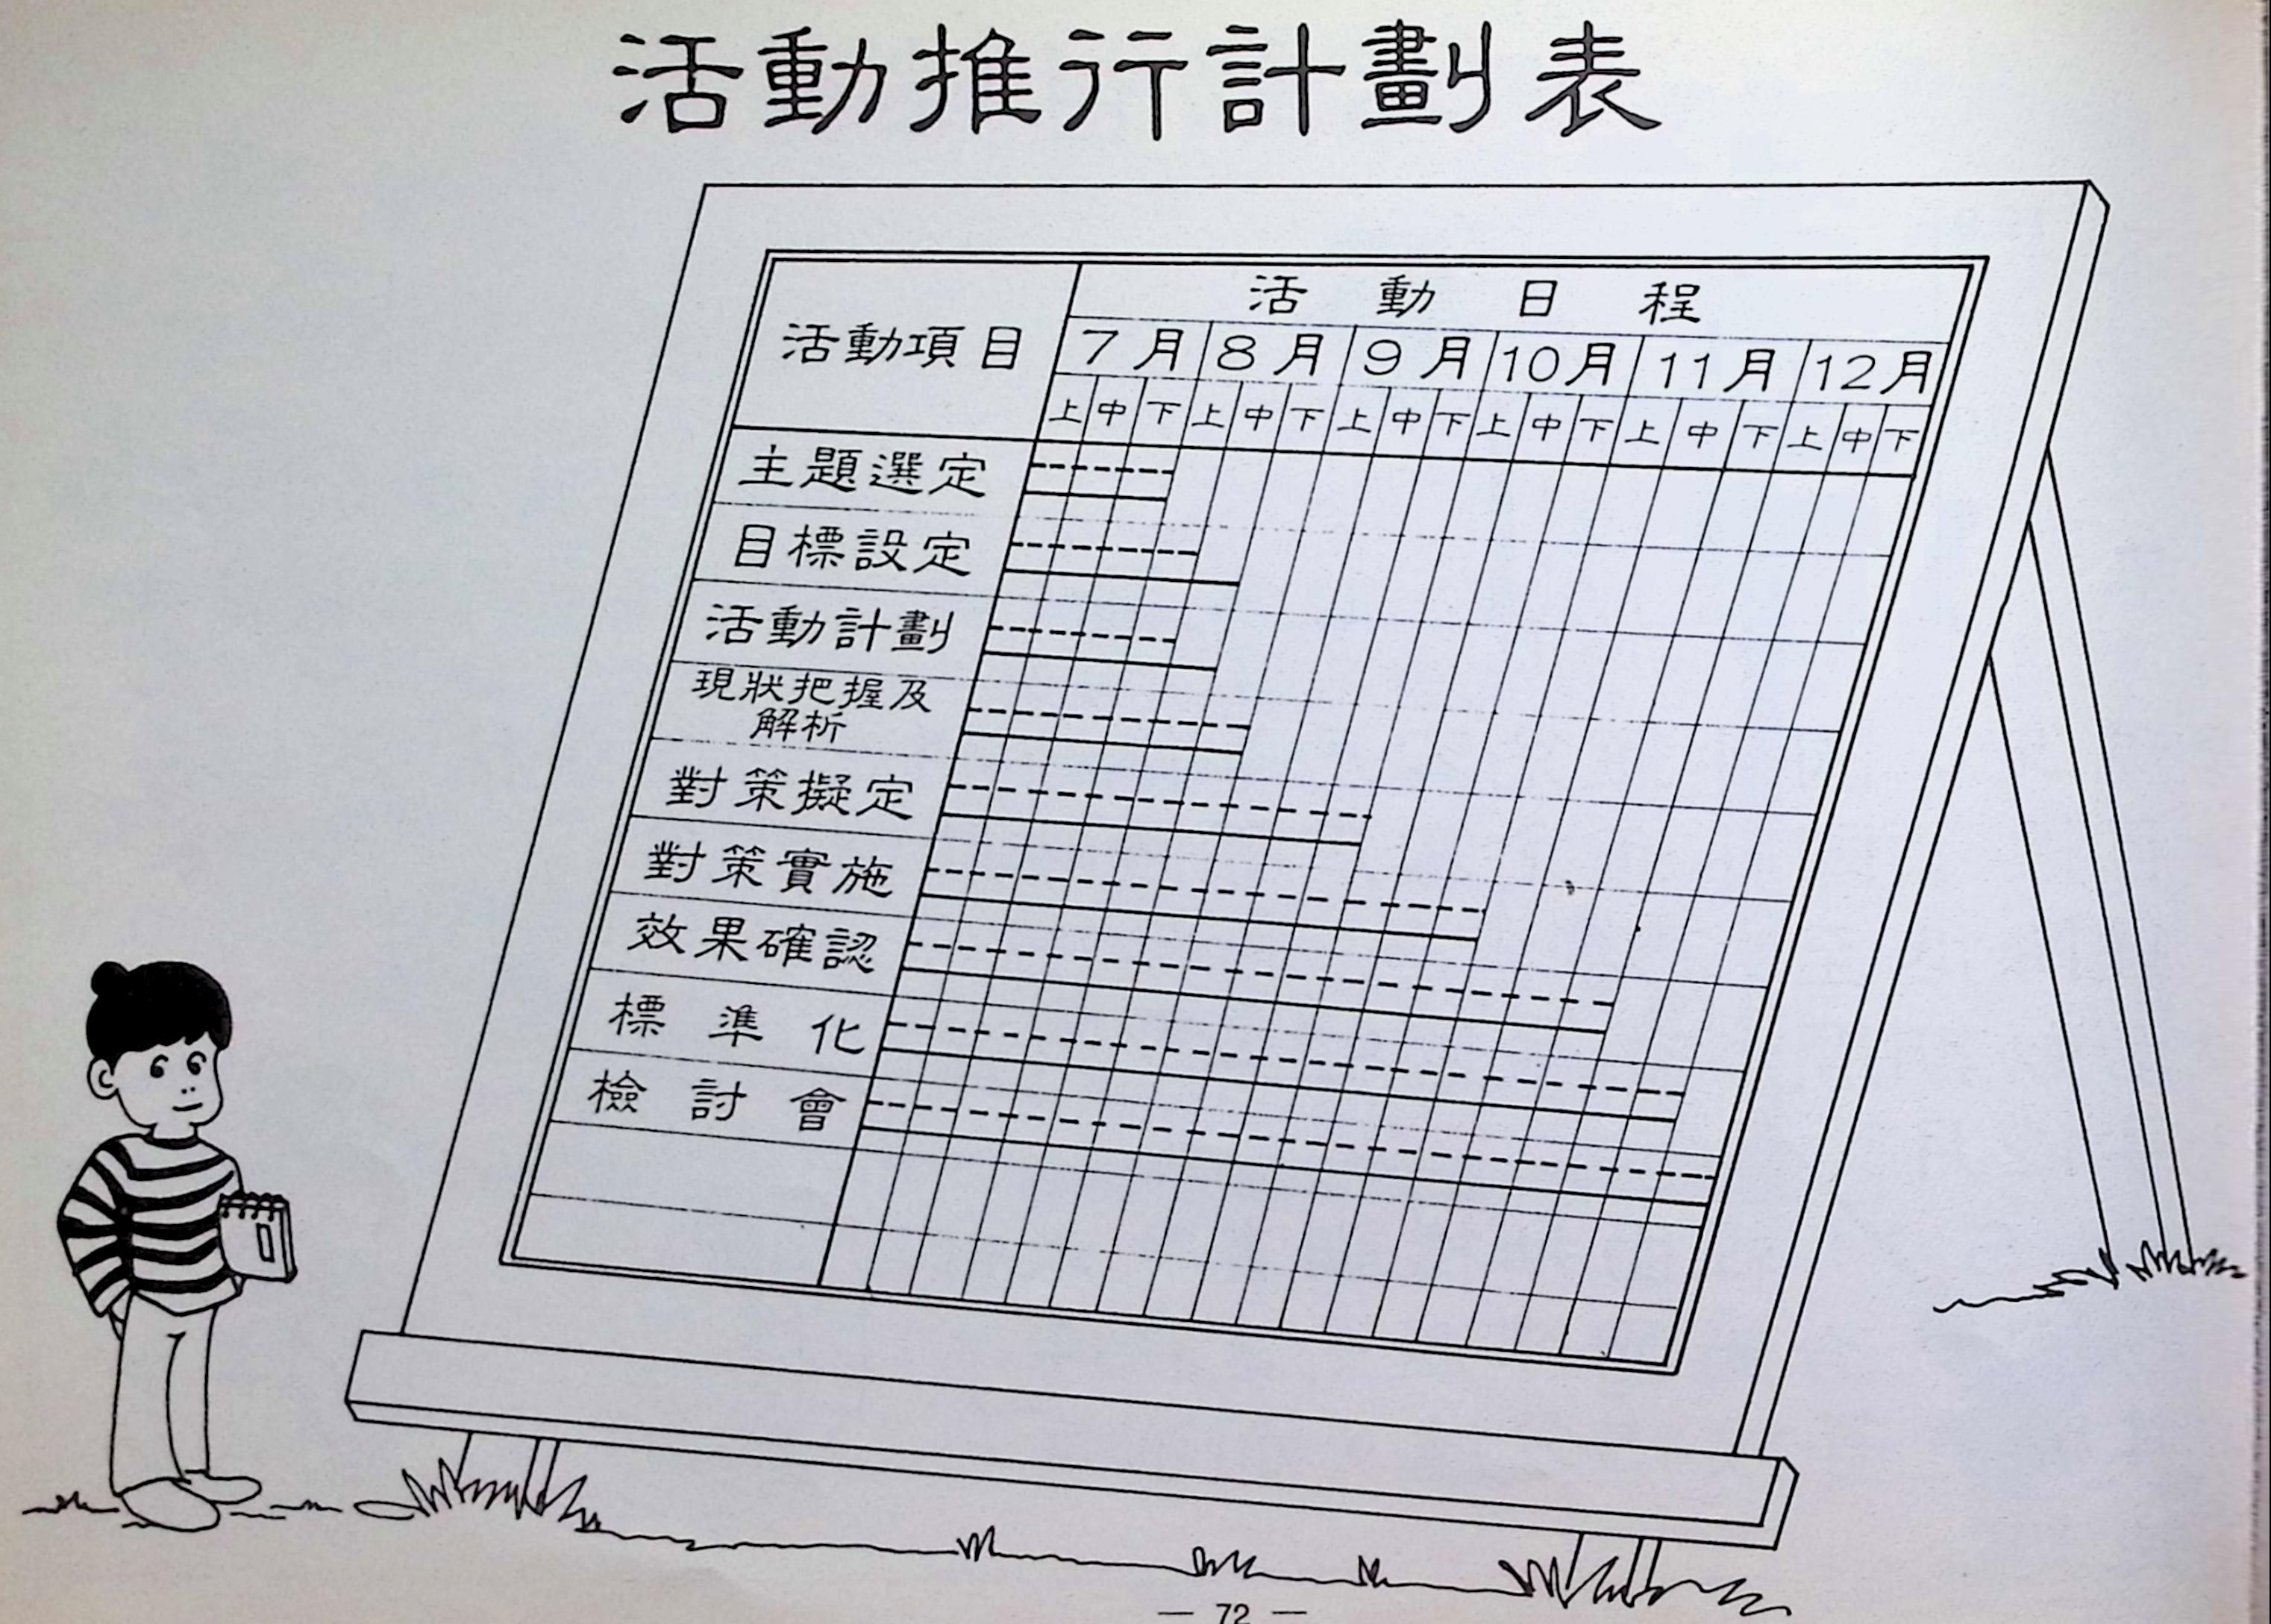 活動推行計劃表
活動日程
活動項目
7月 8月 9月 10月 11月 12月
上 中 下 上 中 下 上 中 下 上 中 下 上 中 下 上 中 下
主題選定
目標設定
活動計劃
現狀把握及
解析
對策擬定
對策實施
效果確認
標準化
檢討會
— 72 —